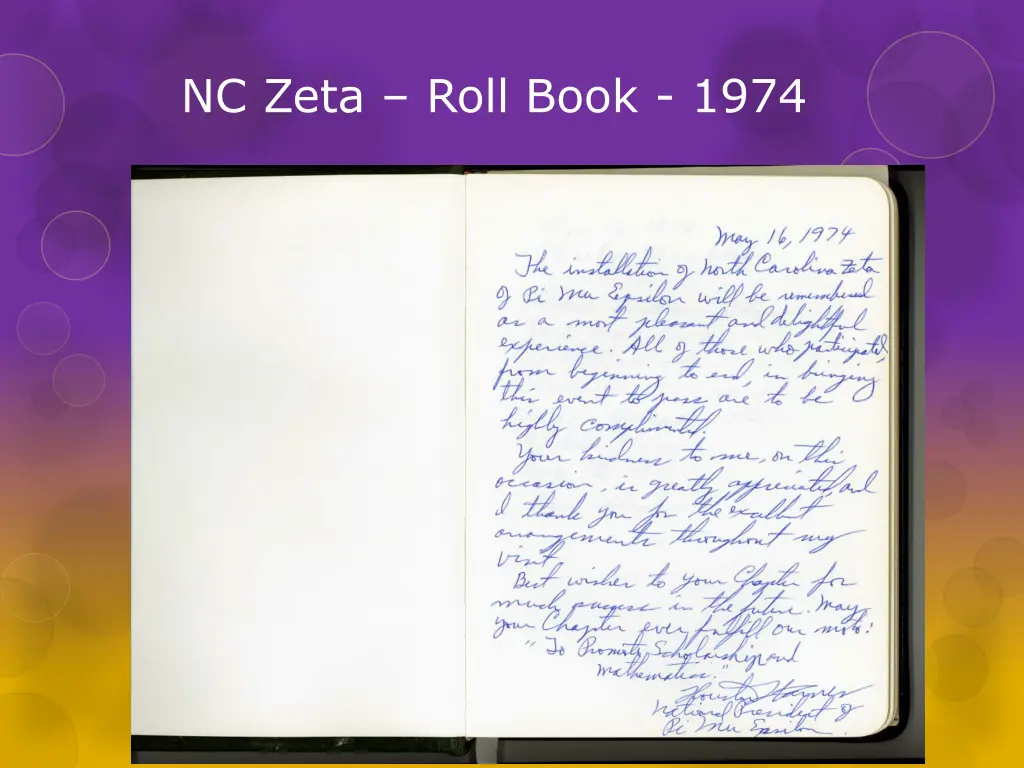 NC Zeta – Roll Book - 1974
May 16, 1974
The installation of North Carolina Zeta
of Pi Mu Epsilon will be remembered
as a most pleasant and delightful
experience. All of those who participated,
from beginning to end, in bringing
this event to pass are to be
highly complimented.
Your kindness to me, on this
occasion, is greatly appreciated, and
I thank you for the excellent
arrangements throughout my
visit.
Best wishes to your Chapter for
much success in the future. May
your Chapter ever fulfill our motto:
"To Promote Scholarship and
Mathematics."
Houston Karnes
National President of
Pi Mu Epsilon.